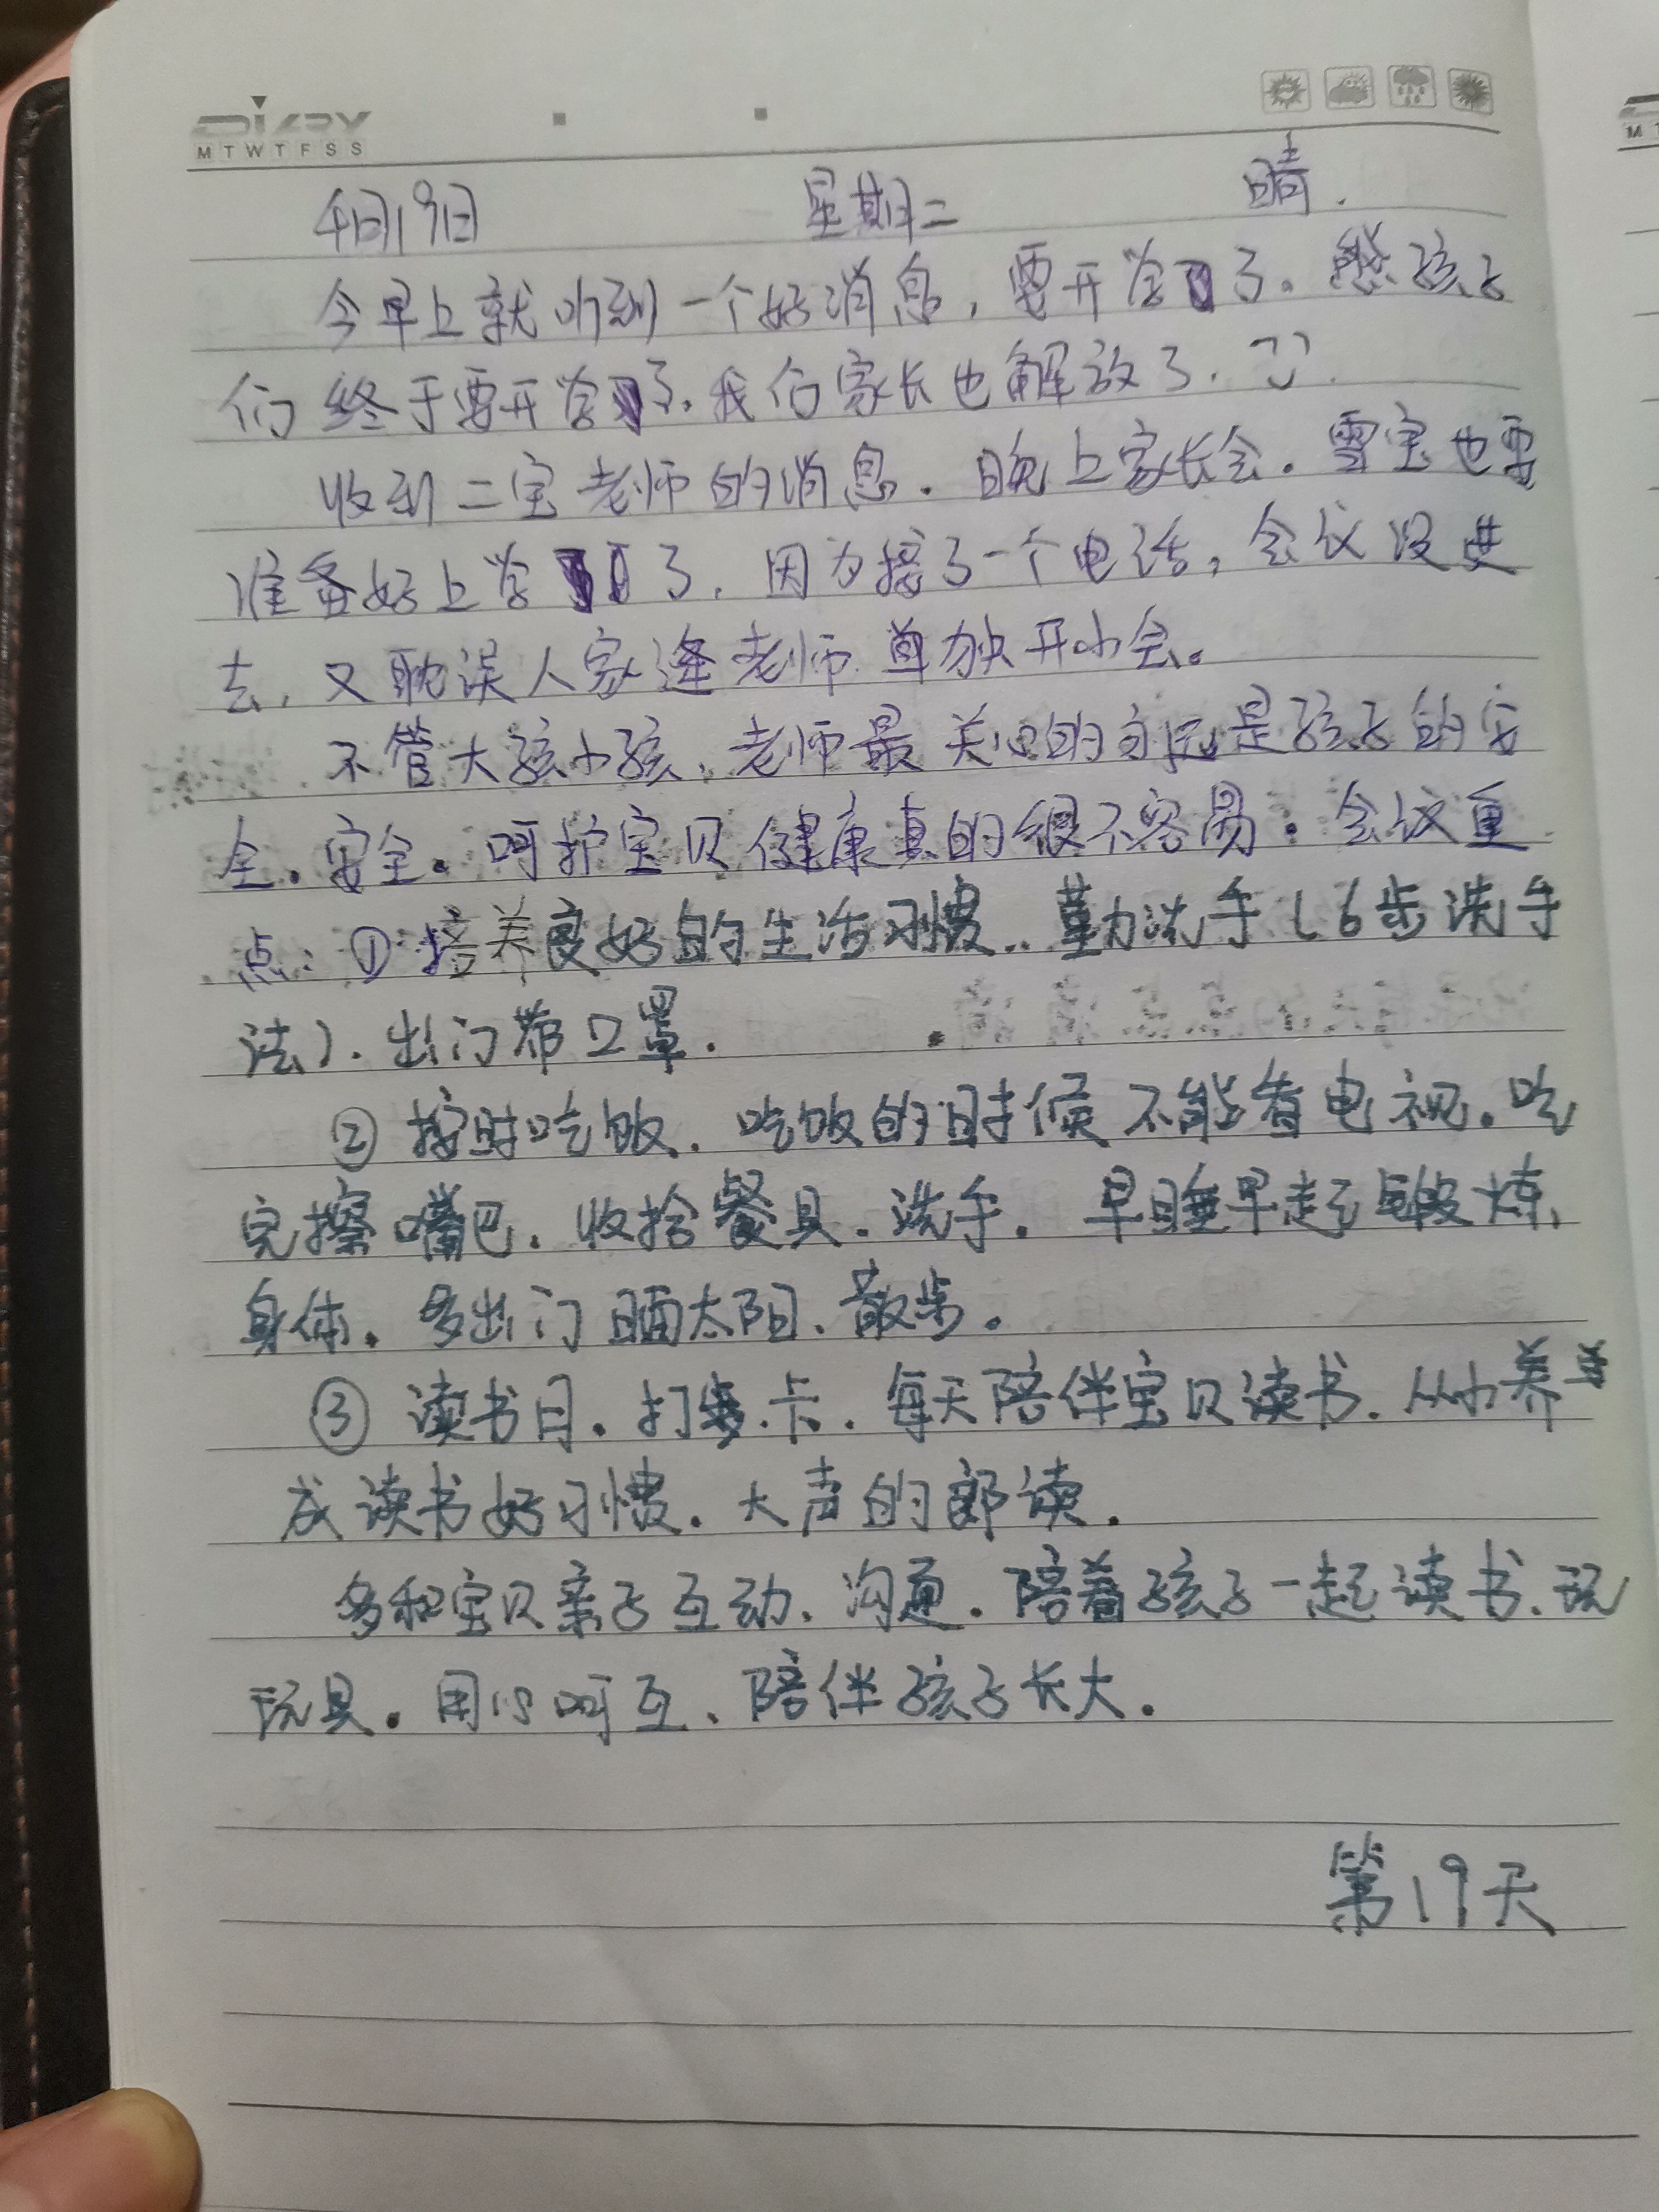 DIARY
MTWTFSS
4月19日 星期二 晴.
今早上就听到一个好消息,要开学了。孩子
们终于要开学了.我们家长也解放了.
收到二宝老师的消息.晚上家长会.雪宝也要
准备好上学了.因为接了一个电话,会议没进
去,又耽误人家逄老师单独开小会。
不管大孩小孩,老师最关心的永远是孩子的安
全.安全.呵护宝贝健康真的很不容易.会议重
点:①培养良好的生活习惯..勤洗手(6步洗手
法).出门带口罩.
②按时吃饭.吃饭的时候不能看电视.吃
完擦嘴巴.收拾餐具.洗手.早睡早起锻炼
身体.多出门晒太阳、散步。
③读书日.打卡.每天陪伴宝贝读书.从小养
成读书好习惯.大声的郎读.
多和宝贝亲子互动、沟通.陪着孩子一起读书、玩
玩具.用心呵互、陪伴孩子长大.
第19天